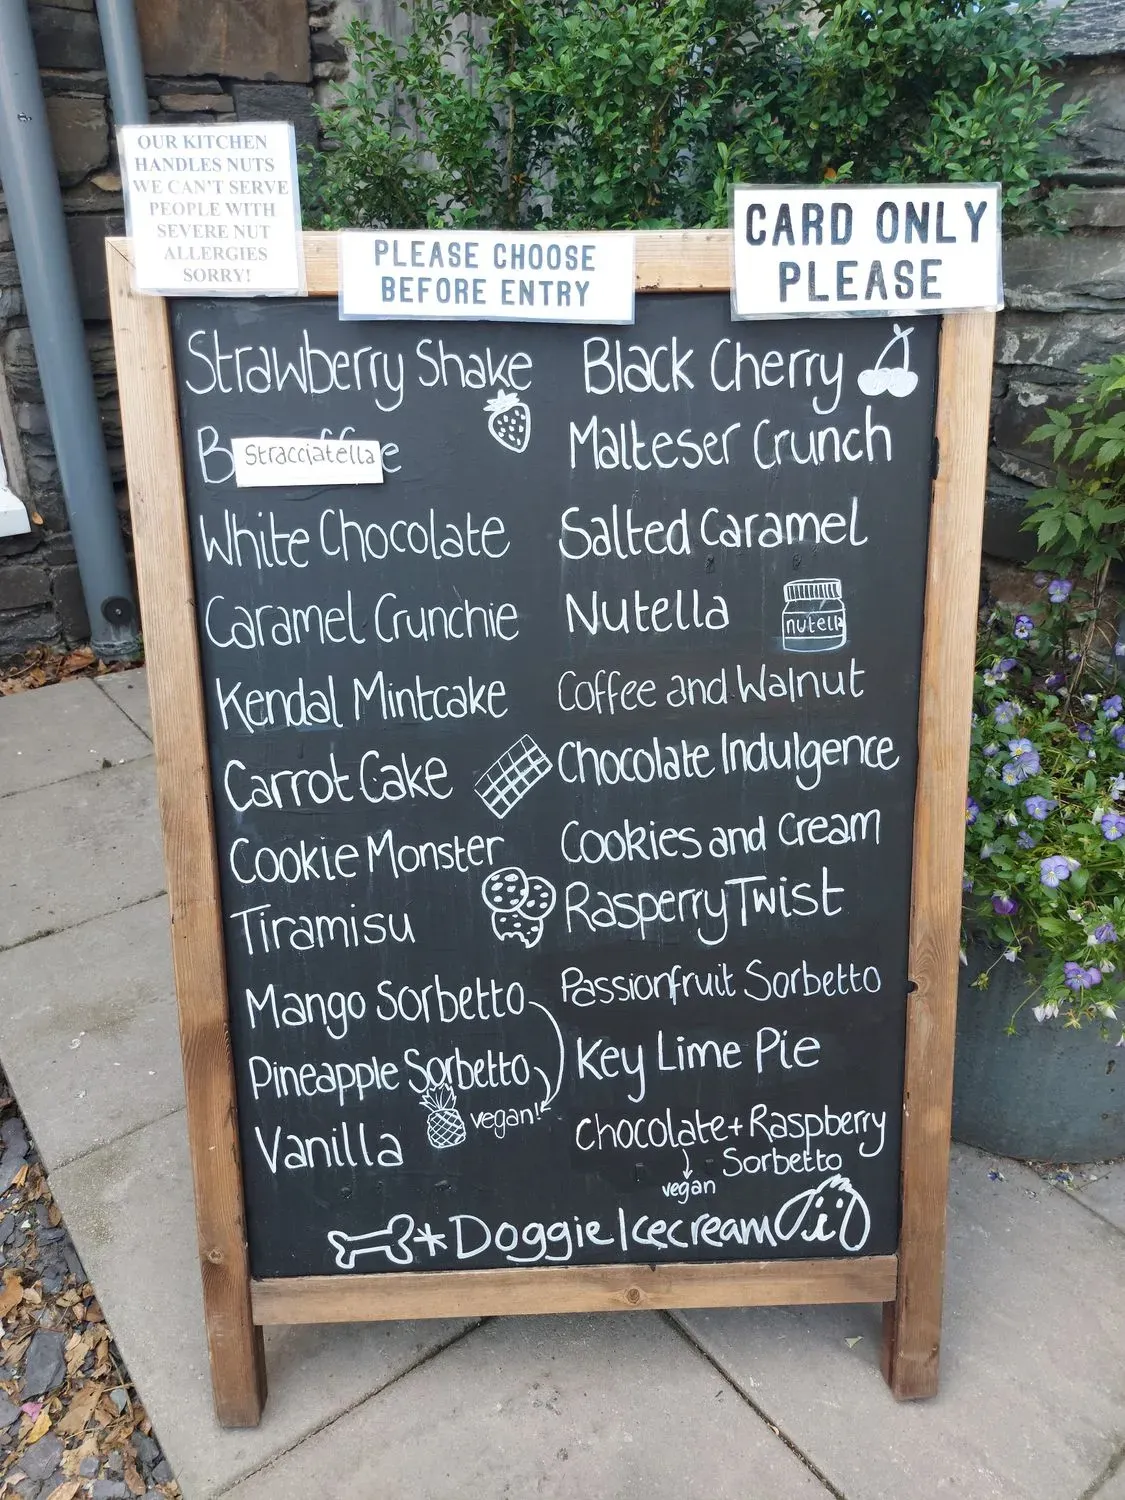 OUR KITCHEN
HANDLES NUTS
WE CAN'T SERVE
PEOPLE WITH
SEVERE NUT
ALLERGIES
SORRY!
PLEASE CHOOSE
BEFORE ENTRY
CARD ONLY
PLEASE
Strawberry Shake
Stracciatella
White Chocolate
Caramel Crunchie
Kendal Mintcake
Carrot Cake
Cookie Monster
Tiramisu
Mango Sorbetto
Pineapple Sorbetto
vegan!
Vanilla
Black Cherry
Malteser Crunch
Salted Caramel
Nutella
nutella
Coffee and Walnut
Chocolate Indulgence
Cookies and Cream
Rasperry Twist
Passionfruit Sorbetto
Key Lime Pie
Chocolate + Raspberry
Sorbetto
vegan
* Doggie Icecream